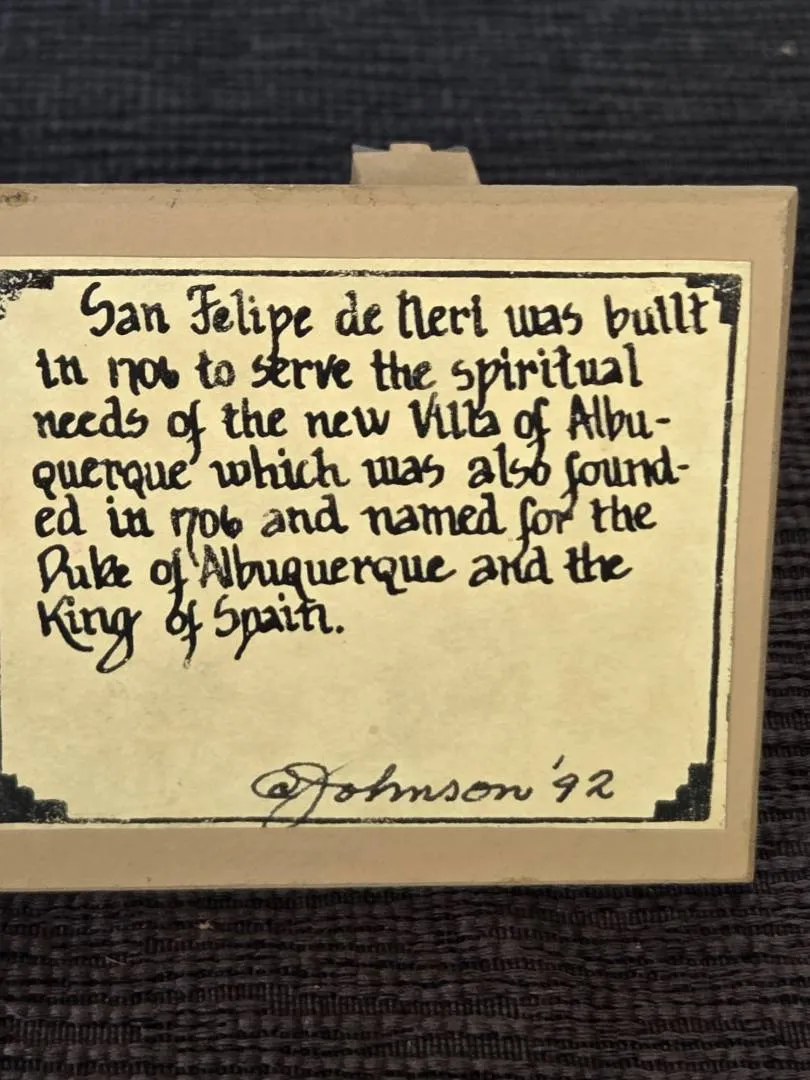 San Felipe de Neri was built
in 1706 to serve the spiritual
needs of the new Villa of Albu-
querque which was also found-
ed in 1706 and named for the
Duke of Albuquerque and the
King of Spain.
Johnson '92